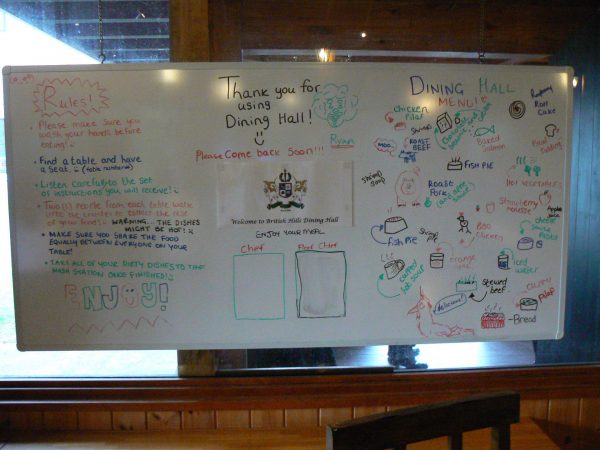 Rules!
• Please make sure you
wash your hands before
eating!
• Find a table and have
a seat. (table numbered)
• Listen carefully to the set
of instructions you will receive!
• Two(2) people from each table walk
WARNING... THE DISHES
MIGHT BE HOT!
• MAKE SURE YOU SHARE THE FOOD
EQUALLY BETWEEN EVERYONE ON YOUR
TABLE!
• TAKE ALL OF YOUR DIRTY DISHES TO THE
WASH STATION ONCE FINISHED!
ENJOY!
Thank you for
using
Dining Hall!
Ryan
Please Come back Soon!!!
Welcome to British Hills Dining Hall
ENJOY YOUR MEAL
Chief
DINING HALL
MENU!
Chicken
Pilaf
Shrimp
MOO..
ROAST
BEEF
Baked
Salmon
Raspberry
Roll
Cake
FISH PIE
Shrimp
Soup
Roast
Pork
HOT VEGETABLES
Strawberry
mousse
Fish Pie
Shrimp
BBQ
Chicken
orange
Iced
water
stewed
beef
delicious!
-Bread